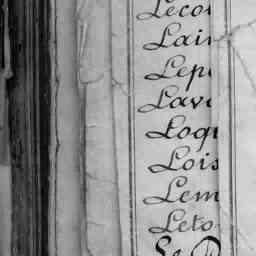 Lecou
Lain
Lepe
Lava
Loqu
Lois
Lem
Leto
Le D